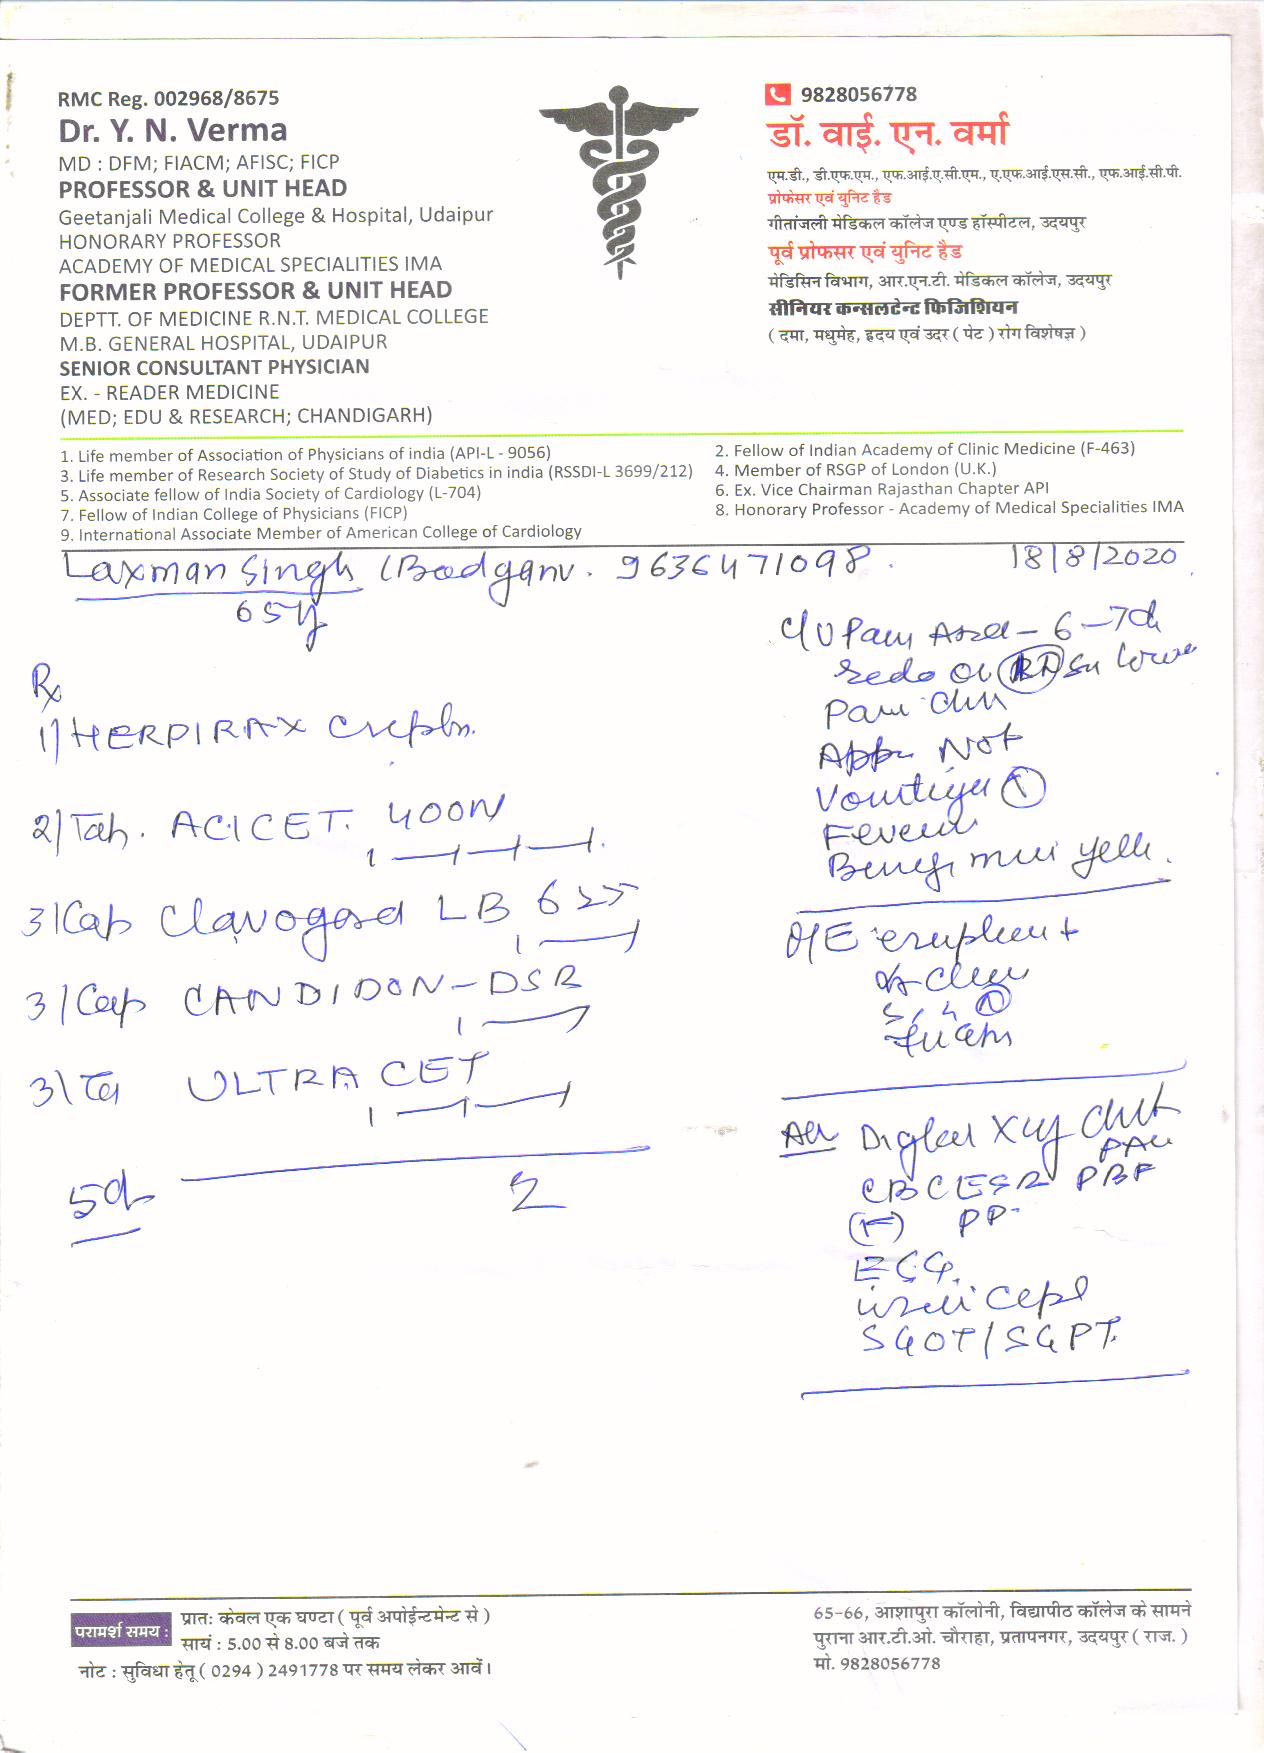 RMC Reg. 002968/8675
Dr. Y. N. Verma
MD : DFM; FIACM; AFISC; FICP
PROFESSOR & UNIT HEAD
Geetanjali Medical College & Hospital, Udaipur
HONORARY PROFESSOR
ACADEMY OF MEDICAL SPECIALITIES IMA
FORMER PROFESSOR & UNIT HEAD
DEPTT. OF MEDICINE R.N.T. MEDICAL COLLEGE
M.B. GENERAL HOSPITAL, UDAIPUR
SENIOR CONSULTANT PHYSICIAN
EX. - READER MEDICINE
(MED; EDU & RESEARCH; CHANDIGARH)
9828056778
डॉ. वाई. एन. वर्मा
एम.डी., डी.एफ.एम., एफ.आई.ए.सी.एम., ए.एफ.आई.एस.सी., एफ.आई.सी.पी.
प्रोफेसर एवं युनिट हैड
गीतांजली मेडिकल कॉलेज एण्ड हॉस्पीटल, उदयपुर
पूर्व प्रोफसर एवं युनिट हैड
मेडिसिन विभाग, आर.एन.टी. मेडिकल कॉलेज, उदयपुर
सीनियर कन्सलटेन्ट फिजिशियन
( दमा, मधुमेह, हृदय एवं उदर ( पेट ) रोग विशेषज्ञ )
1. Life member of Association of Physicians of india (API-L - 9056)
2. Fellow of Indian Academy of Clinic Medicine (F-463)
3. Life member of Research Society of Study of Diabetics in india (RSSDI-L 3699/212)
4. Member of RSGP of London (U.K.)
5. Associate fellow of India Society of Cardiology (L-704)
6. Ex. Vice Chairman Rajasthan Chapter API
7. Fellow of Indian College of Physicians (FICP)
8. Honorary Professor - Academy of Medical Specialities IMA
9. International Associate Member of American College of Cardiology
Laxman Singh (Badganv. 9636471098. 18/8/2020
65y
Rx
1) HERPIRAX
2) Tab. ACICET. 400
3) Cap LB 625
3) Cap CANDIDON-DSR
3) ULTRACET
5d
2
6-7d
Not
Fever
O/E
CBC ESR PBF
PP
ECG.
SGOT/SGPT.
परामर्श समय :
प्रातः केवल एक घण्टा ( पूर्व अपोईन्टमेन्ट से )
सायं : 5.00 से 8.00 बजे तक
नोट : सुविधा हेतू ( 0294 ) 2491778 पर समय लेकर आवें।
65-66, आशापुरा कॉलोनी, विद्यापीठ कॉलेज के सामने
पुराना आर.टी.ओ. चौराहा, प्रतापनगर, उदयपुर ( राज. )
मो. 9828056778